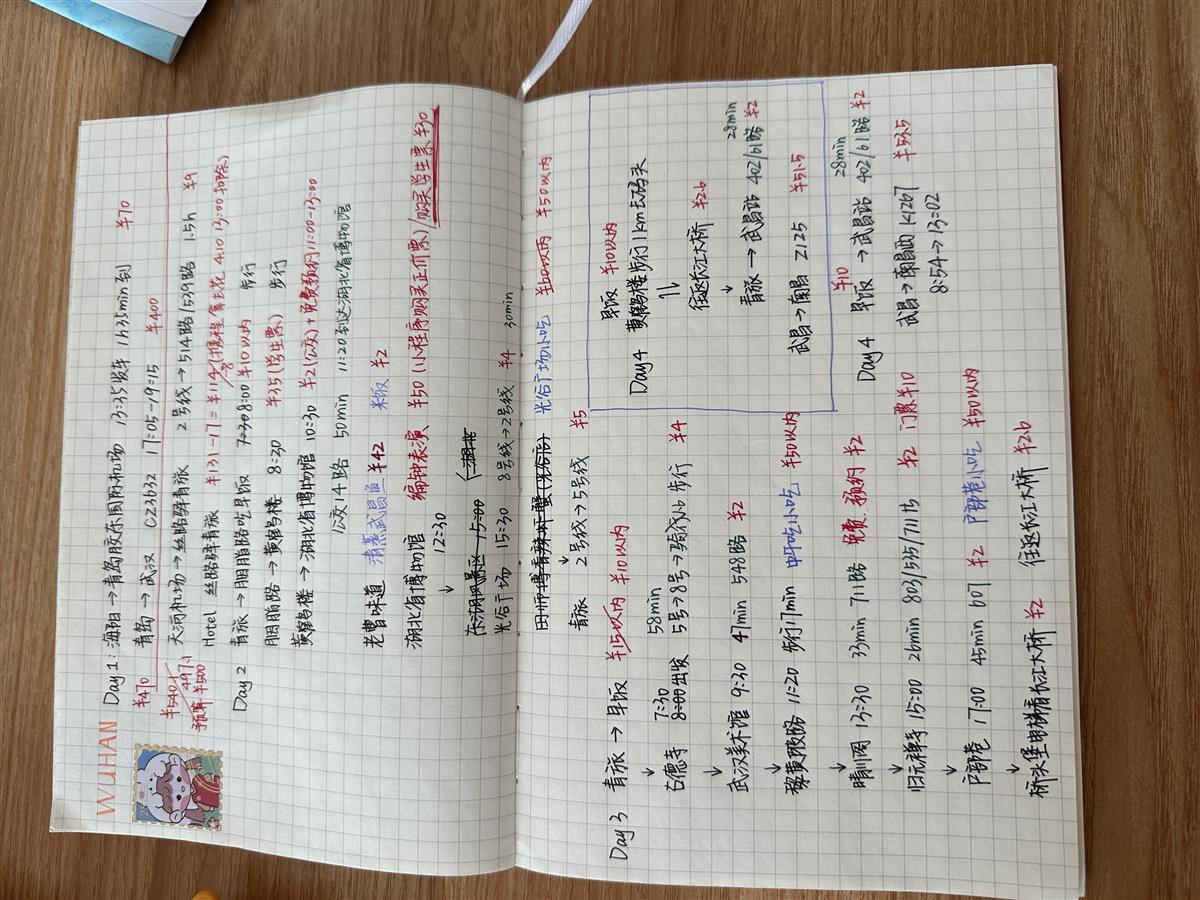 WUHAN
Day 1: 海阳 → 青岛胶东国际机场 13:35发车 1h35min到 ¥70
¥470 青岛 → 武汉 CZ3632 17:05-19:15 ¥400
¥540.1 天河机场 → 丝路驿青旅 2号线 → 514路/539路 1.5h ¥9
497.1 Hotel 丝路驿青旅 ¥131-17=¥114 (携程拿去花 4.10 13:00扣除)
预算¥500
Day 2 青旅 → 胭脂路吃早饭 7:30 8:00 ¥10以内 步行
胭脂路 → 黄鹤楼 8:30 ¥35(学生票) 步行
黄鹤楼 → 湖北省博物馆 10:30 ¥2(公交)+免费预约11:00-13:00
公交14路 50min 11:20到达湖北省博物馆
老曾味道 清蒸武昌鱼 ¥42 米饭 ¥2
湖北省博物馆 编钟表演 ¥50 (小程序购买正价票)/购买学生票¥30
↓ 12:30
东湖风景区 15:00
光谷广场 15:30 8号线→2号线 ¥4 30min
田师傅香辣虾蟹(光谷店) 光谷广场小吃 ¥60以内 ¥50以内
↓
青旅 2号线→5号线 ¥5
Day 3 青旅 → 早饭 ¥15以内 ¥10以内
↓ 7:30 58min
古德寺 8:00出发 5号→8号→骑行/步行 ¥4
↓
武汉美术馆 9:30 47min 548路 ¥2
↓
黎黄陂路 11:20 步行17min 中午吃小吃 ¥50以内
↓
晴川阁 13:30 33min 711路 免费、预约 ¥2
↓
归元禅寺 15:00 26min 803/585/711路 ¥2 门票¥10
↓
户部巷 17:00 45min 607 ¥2 户部巷小吃 ¥50以内
↓
桥头堡电梯看长江大桥 ¥2 往返长江大桥 ¥2b
早饭 ¥10以内
Day 4 黄鹤楼步行1km去码头
⇅
往返长江大桥 ¥2b
↓ 28min
青旅 → 武昌站 402/61路 ¥2
武昌→南昌 Z125 ¥51.5
¥10 28min
Day 4 早饭 青旅 → 武昌站 402/61路 ¥2
武昌→南昌西 K1267 ¥53.5
8:54→13:02